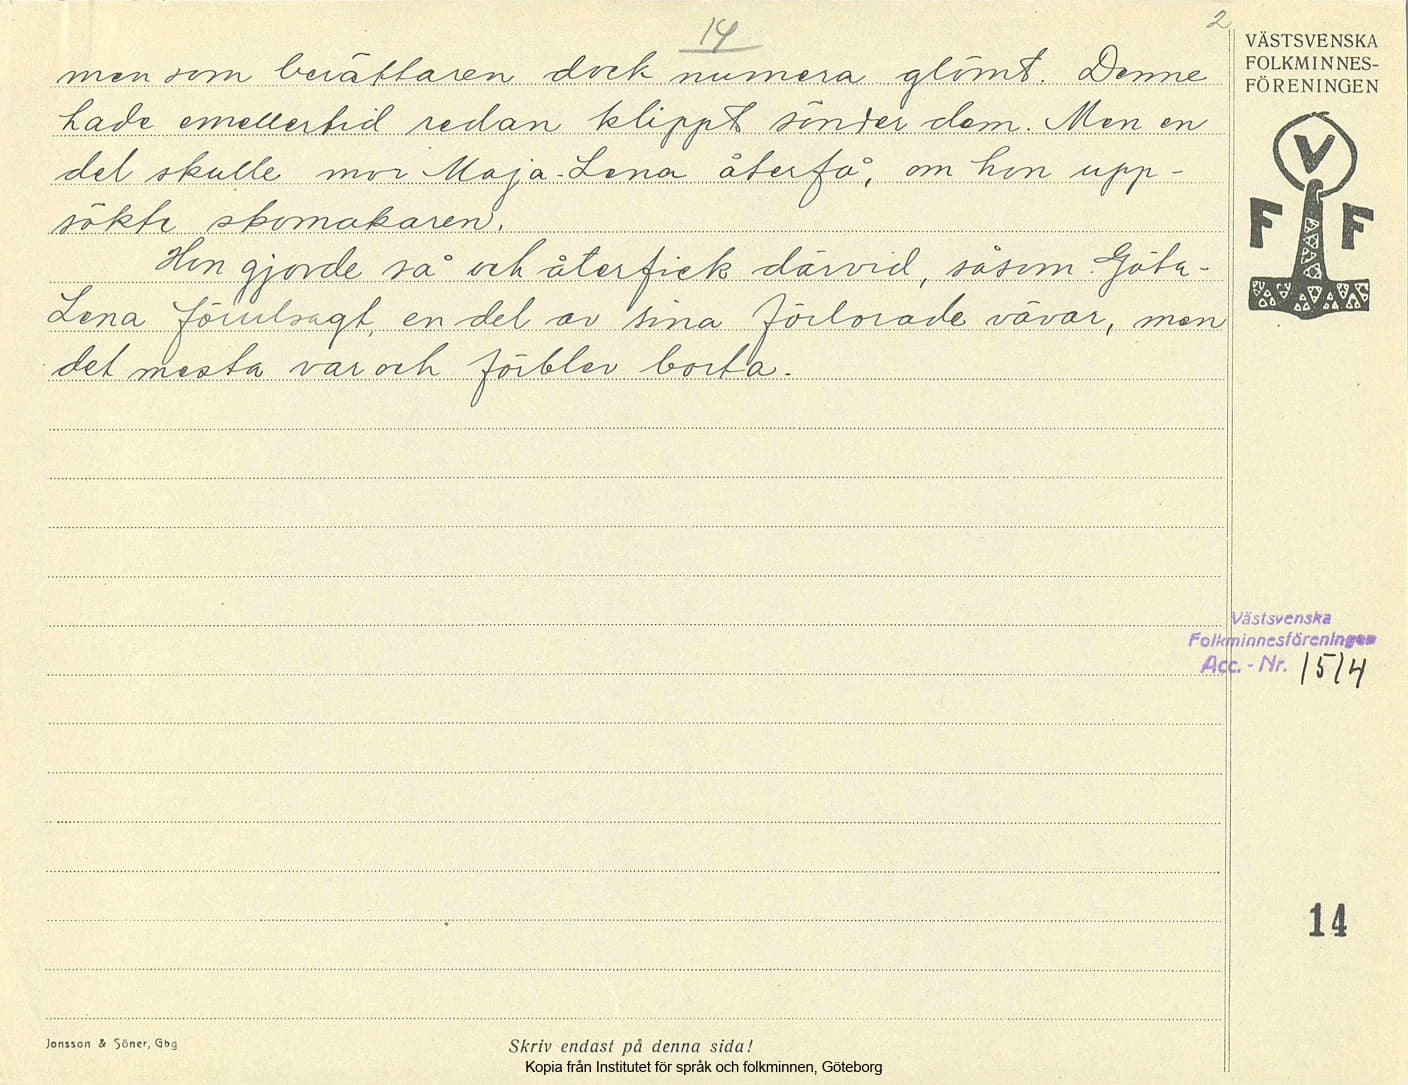 14
2
men som berättaren dock numera glömt. Denne
hade emellertid redan klippt sönder dem. Men en
del skulle mor Maja-Lena återfå, om hon upp-
sökte skomakaren.
Hon gjorde så och återfick därvid, såsom Göta-
Lena förutsagt, en del av sina förlorade vävar, men
det mesta var och förblev borta.
VÄSTSVENSKA
FOLKMINNES-
FÖRENINGEN
V
F F
Västsvenska
Folkminnesföreningen
Acc. - Nr. 1514
14
Jonsson & Söner, Gbg
Skriv endast på denna sida!
Kopia från Institutet för språk och folkminnen, Göteborg